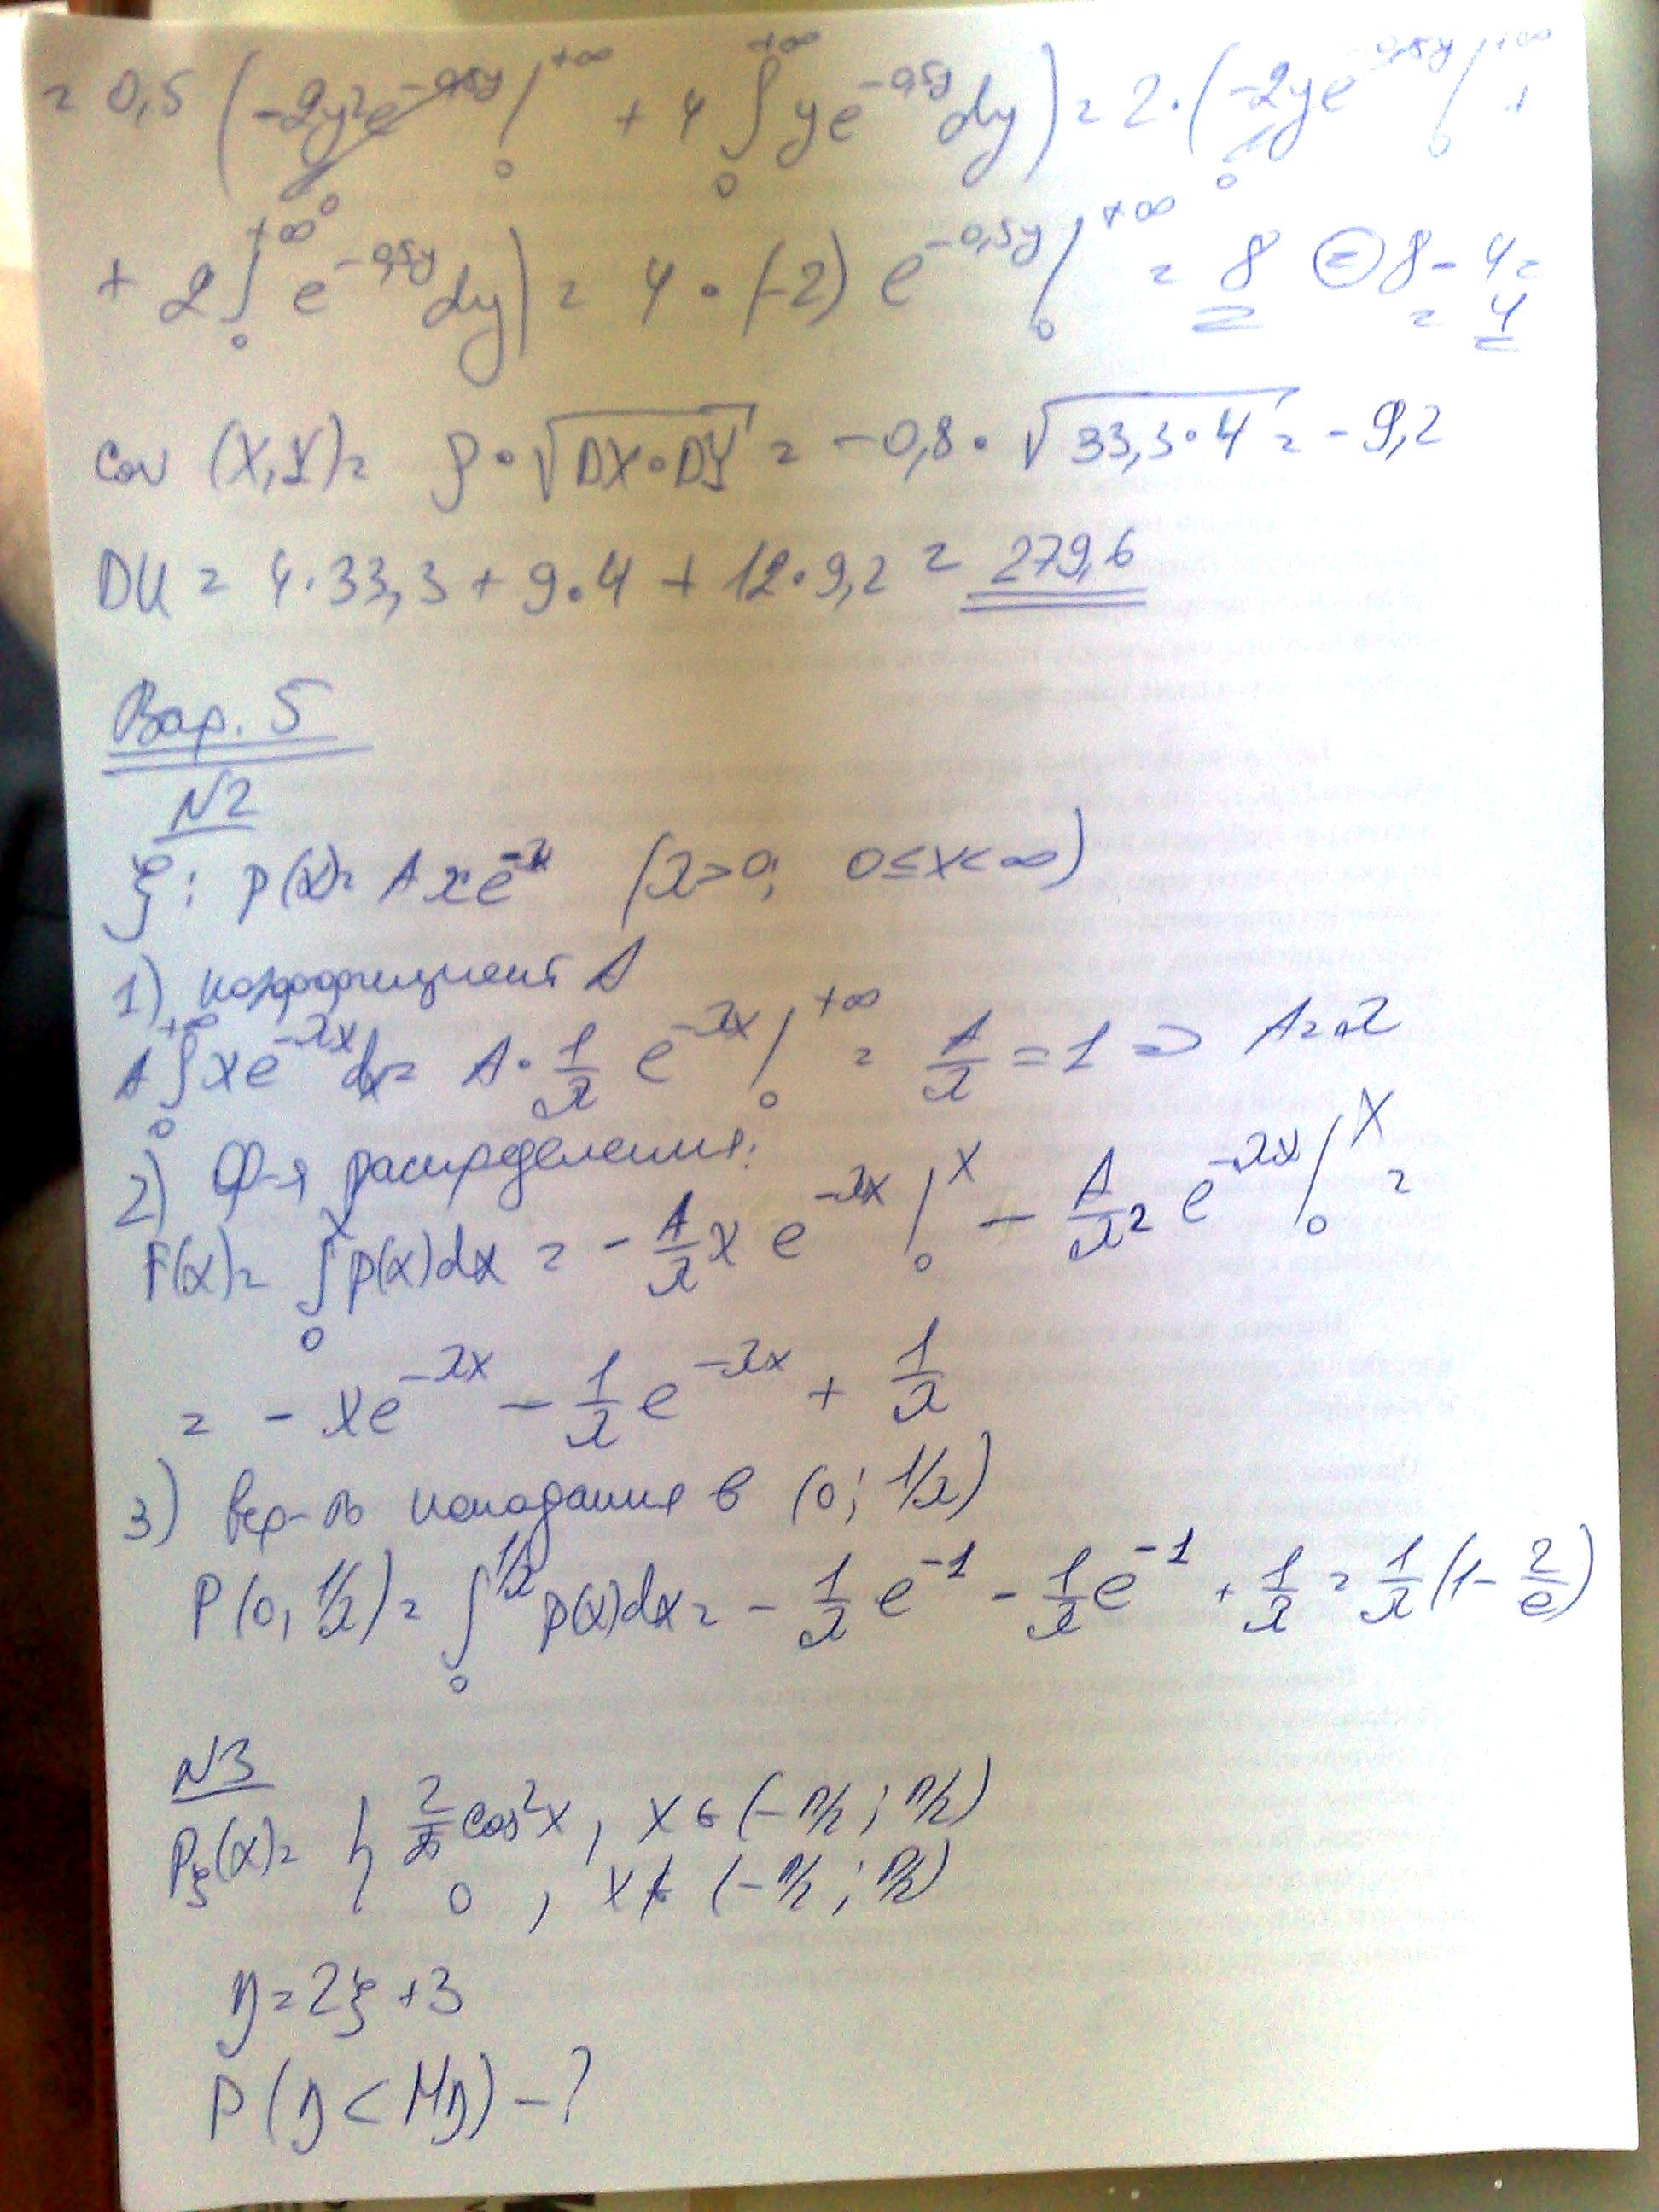 = 0,5 (-2y²e^{-0,5y} |₀^{+∞} + 4 ∫₀^{+∞} ye^{-0,5y}dy) = 2·(-2ye^{-0,5y} |₀^{+∞} +
+ 2∫₀^{+∞} e^{-0,5y}dy) = 4·(-2) e^{-0,5y} |₀^{+∞} = 8 ⊜ 8-4=
= 4
cov (X,Y) = ρ·√(DX·DY) = -0,8·√(33,3·4) = -9,2
DU = 4·33,3 + 9·4 + 12·9,2 = 279,6
Вар. 5
N2
ξ: p(x) = A x e^{-λx} (λ>0; 0≤x<∞)
1) коэффициент A
A∫₀^{+∞} xe^{-λx}dx = A·1/λ e^{-λx} |₀^{+∞} = A/λ = 1 => A=λ
2) Ф-я распределения:
F(x) = ∫₀^x p(x)dx = -A/λ x e^{-λx} |₀^x - A/λ² e^{-λx} |₀^x =
= -xe^{-λx} - 1/λ e^{-λx} + 1/λ
3) вер-ть попадания в (0; 1/λ)
P(0, 1/λ) = ∫₀^{1/λ} p(x)dx = -1/λ e^{-1} - 1/λ e^{-1} + 1/λ = 1/λ (1-2/e)
N3
P_ξ(x) = { 2/π cos²x, x∈(-π/2; π/2)
0, x∉(-π/2; π/2)
η=2ξ+3
P(η<Mη)-?